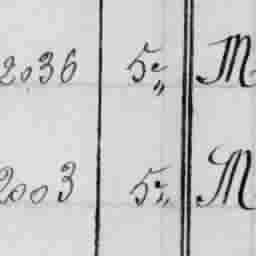 2036 5 e„ M
2003 5 e„ M